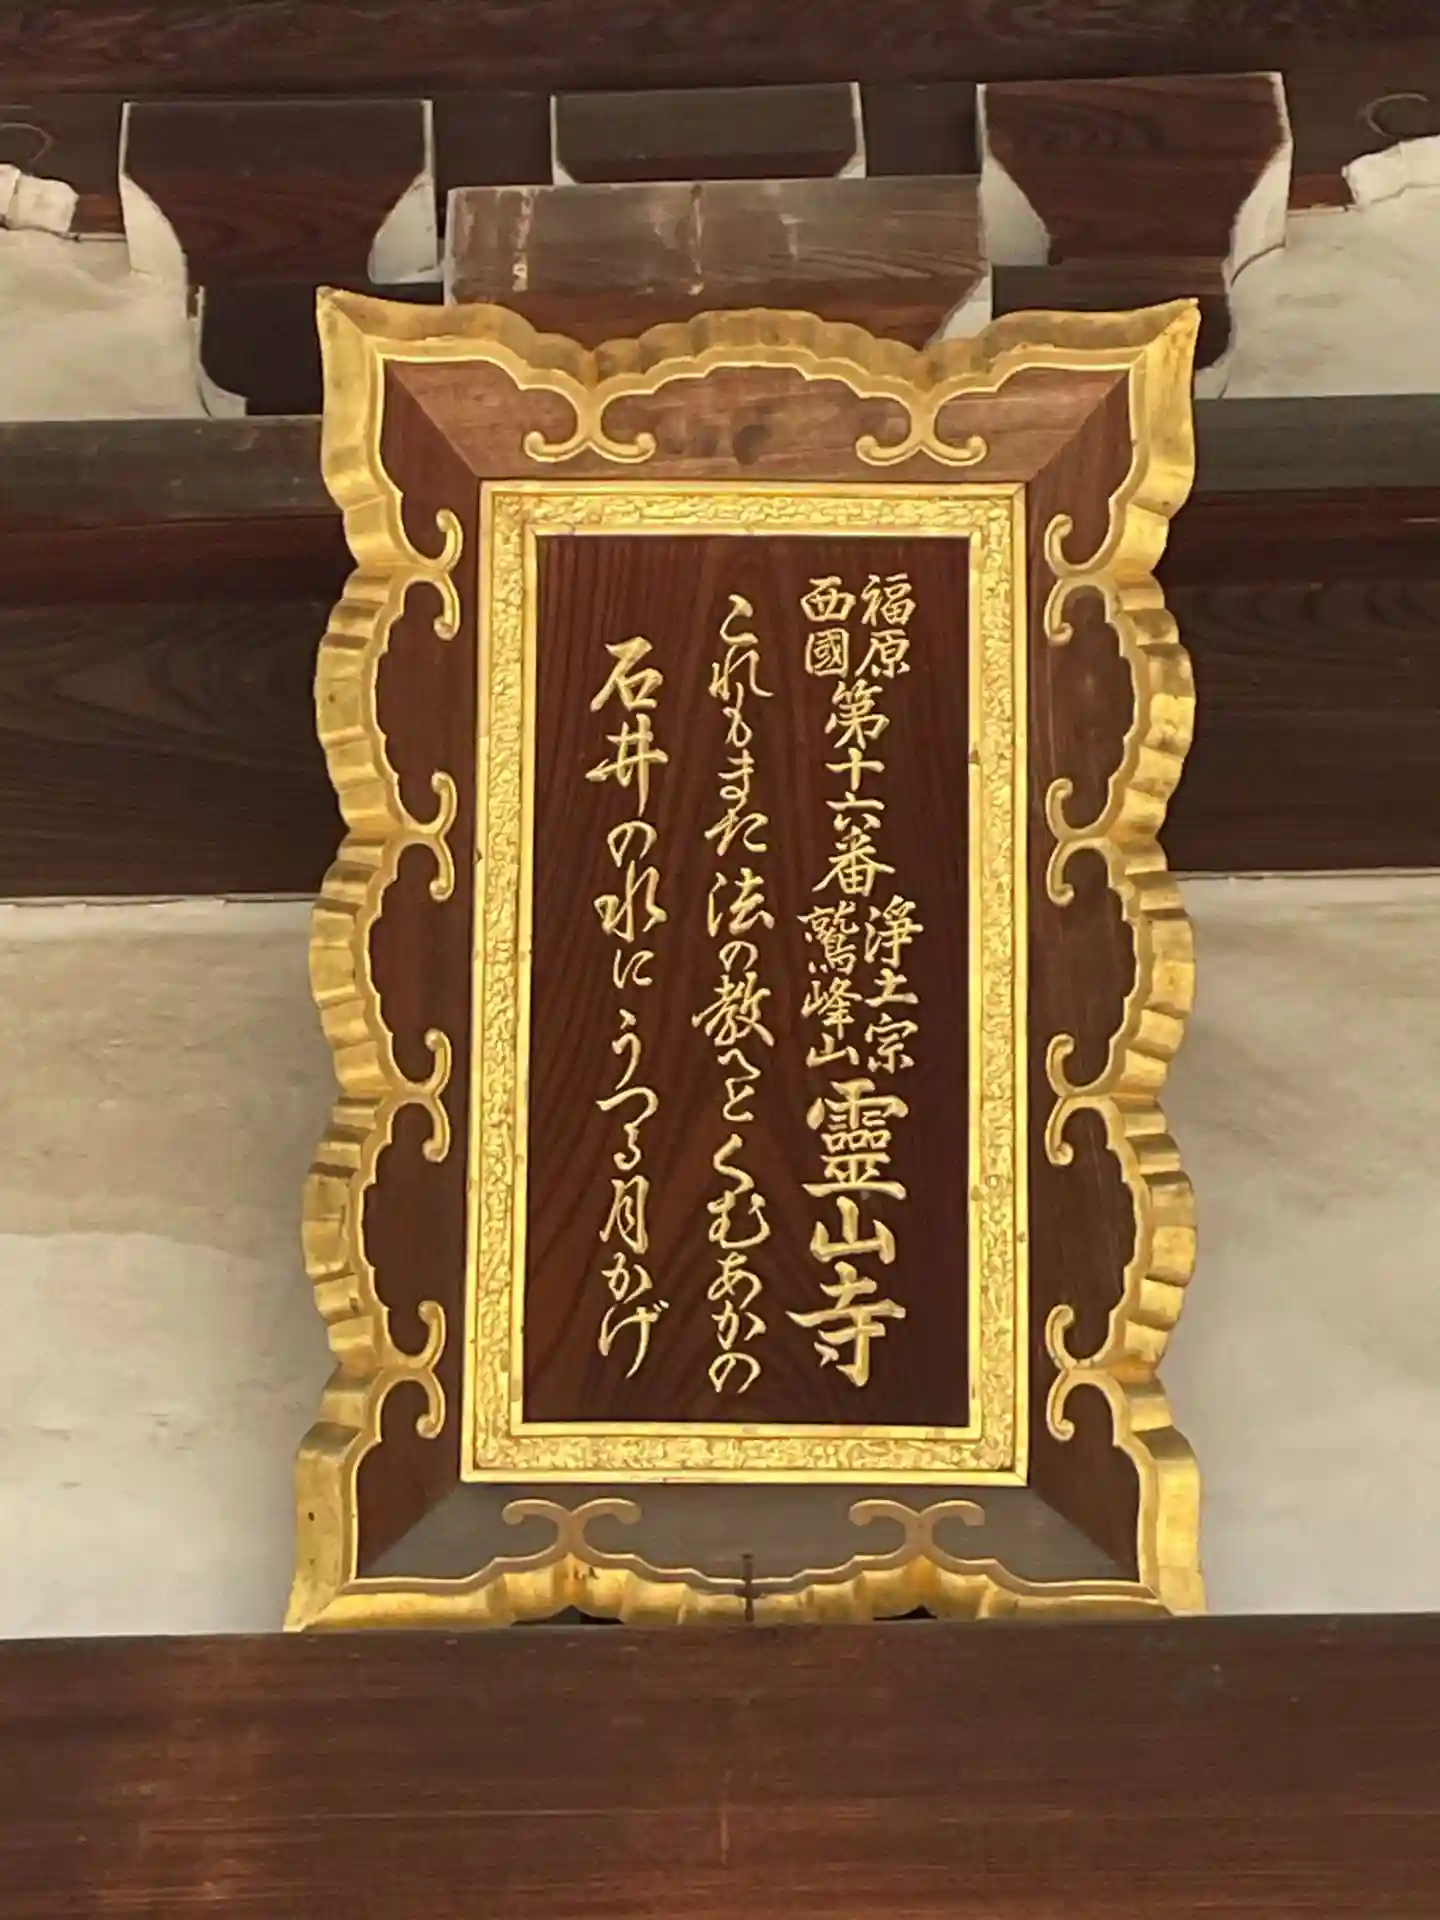 福原西國第十六番浄土宗鷲峰山靈山寺
これもまた法の教へとくむあかの
石井の水にうつる月かげ